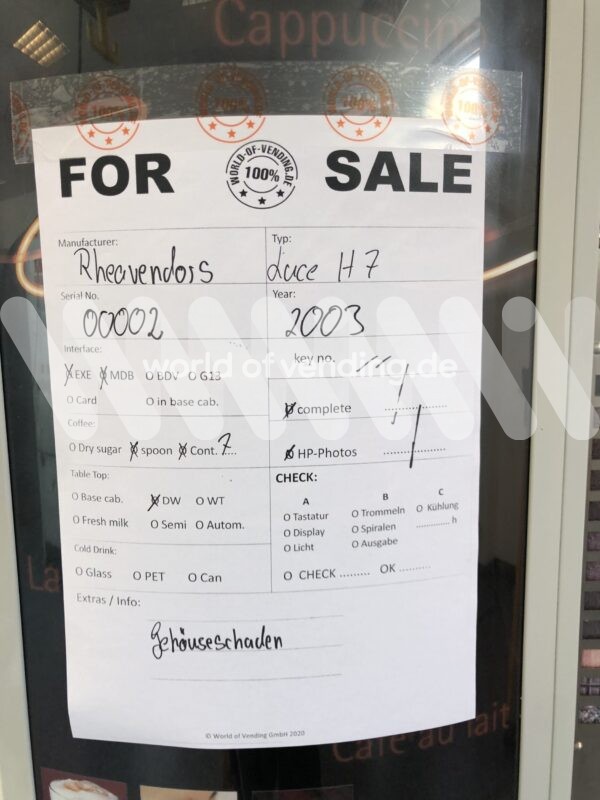 Cappuccino
FOR WORLD-OF-VENDING.DE 100% SALE
Manufacturer: Typ:
Rheavendors Luce H7
Serial No. Year:
00002 2003
Interface: key no.
world of vending.de
EXE MDB O BDV O G13
O Card O in base cab.
complete
Coffee:
O Dry sugar spoon Cont. 7
HP-Photos
Table Top: CHECK:
O Base cab. DW O WT
A B C
O Tastatur O Trommeln O Kühlung
O Fresh milk O Semi O Autom.
O Display O Spiralen ............ h
O Licht O Ausgabe
Cold Drink:
O Glass O PET O Can
O CHECK ......... OK .........
Extras / Info:
Gehöuseschaden
© World of Vending GmbH 2020
Café au lait